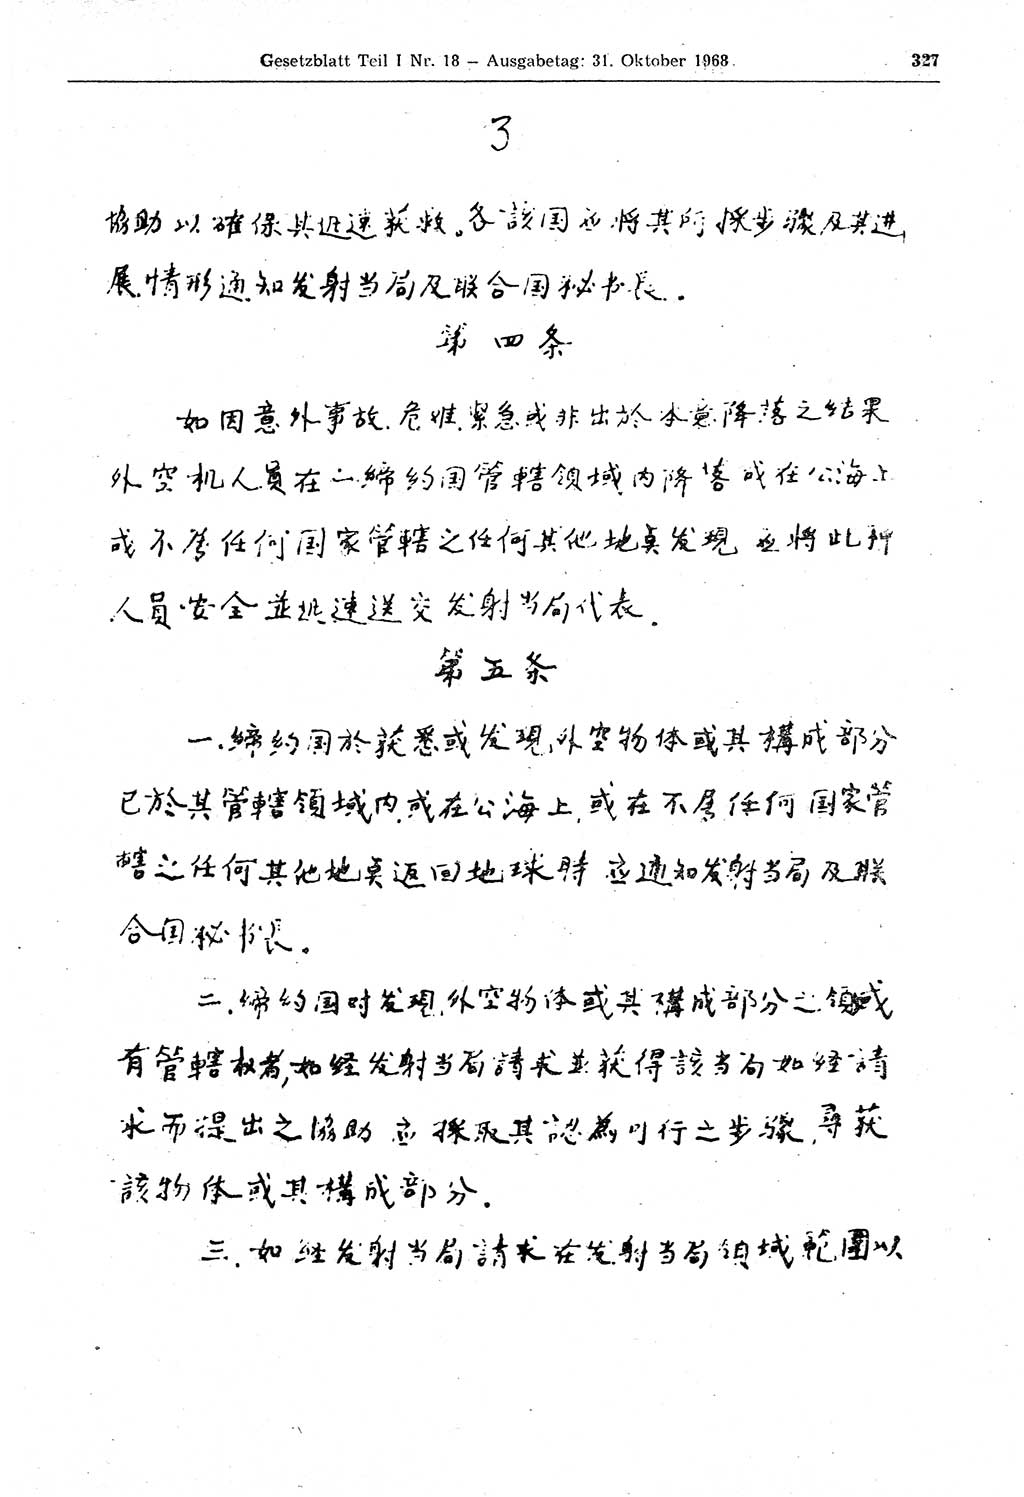 Gesetzblatt Teil I Nr. 18 — Ausgabetag: 31. Oktober 1968
327
3
協助以確保其迅速获救。各該国应将其所採步骤及其进
展情形通知发射当局及联合国秘书长.
第四条
如因意外事故.危难.緊急或非出於本意降落之结果
外空机人員在一締约国管轄領域内降落或在公海上
或不属任何国家管轄之任何其他地奌发現 应将此种
人員安全並迅速送交发射当局代表.
第五条
一.締约国於获悉或发現,外空物体或其構成部分
已於其管轄領域内,或在公海上,或在不属任何国家管
轄之任何其他地奌返回地球時 应通知发射当局及联
合国秘书长。
二.締约国对发現外空物体或其構成部分之領域
有管轄权者,如经发射当局請求並获得該当局如经請
求而提出之協助 应採取其認為可行之步骤,尋获
該物体或其構成部分.
三.如经发射当局請求在发射当局領域範圍以